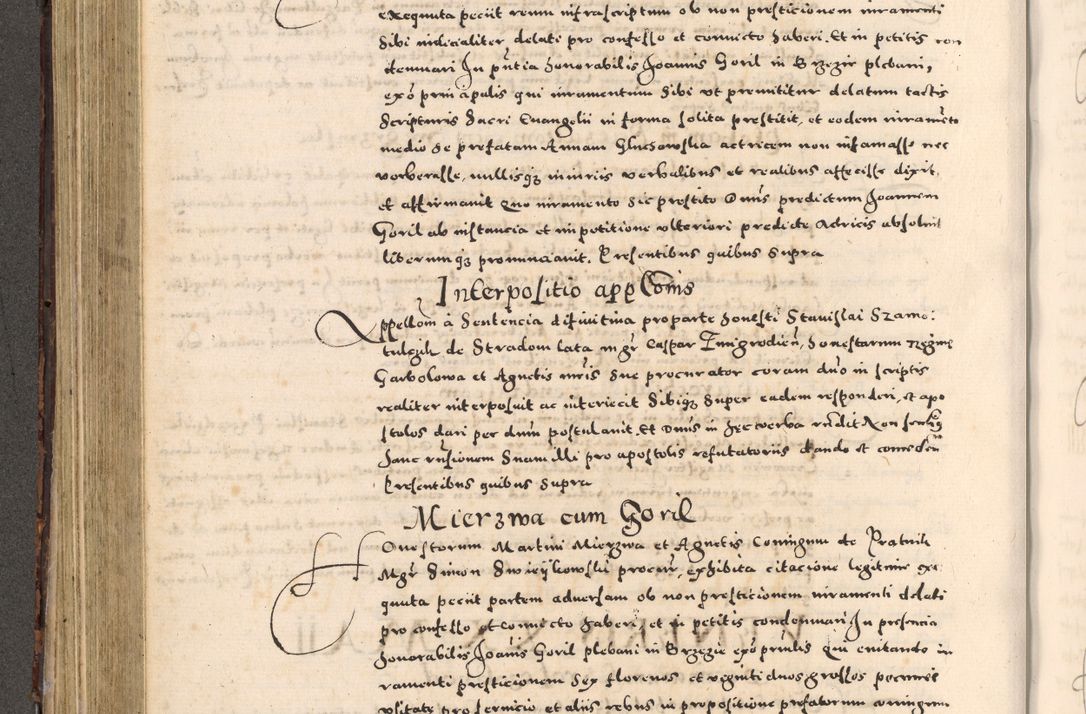 exequuta peciit reum infrascriptum ob non prestitionem iuramenti
sibi iudicialiter delati pro confesso et convicto haberi. Et in petitis con
demnari In pntia honorabilis Joannis Goril in Brzezie plebani,
ex o principalis qui iuramentum sibi ut premittitur delatum tactis
scripturis sacri Euangelii in forma solita prestitit, et eodem iuramento
medio se prefatam Annam actricem non infamasse nec
verberasse, nullisqz iniuriis verbalibus et realibus affecisse dixit
et affirmavit Quo iuramento sic prestito Dnus predictum Joannem
Goril ab instancia et impetitione ulteriori predicte Actricis absoluit
liberumqz pronunciauit. Presentibus quibus supra
Interpositio appConis
Appellom à sentencia difinitiua pro parte honesti Stanislai Szamo:
tulczik de Stradom lata mgr Caspar honestarum Regine
Garbolowa et Agnetis mris sue procurator coram dno in scriptis
realiter interposuit ac interiecit sibiqz super eadem responderi, et apo
stolos dari per dnum postulauit. Et Dnus in hec verba rndit Non
hanc rnsionem suam illi pro apostolis refutatoriis dando et
Presentibus quibus supra
Mierzwa cum Goril
Honestorum Martini Mierzwa et Agnetis Coniugum de Pratnik
Mgr Simon procur, exhibita citacione legitime exe
quuta peciit partem adversam ob non prestitionem iuramenti delati
pro confesso et convicto haberi, et in petitis condemnari, In presencia
honorabilis Joannis Goril plebani in Brzezie ex o prinlis Qui euitando iu
ramenti prestitionem sex florenos et viginti duos grossos pecunie
usitate pro servicio et aliis rebus in propositione prefatorum coniugum